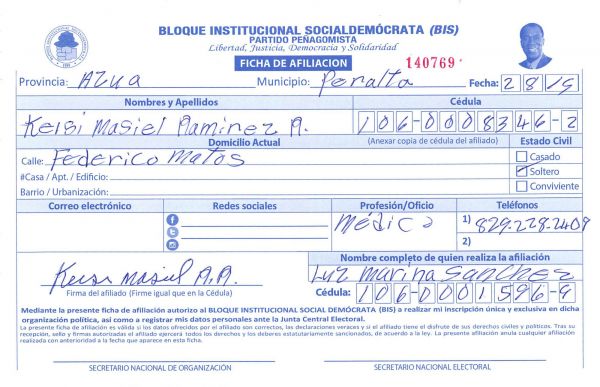 BLOQUE INSTITUCIONAL SOCIALDEMÓCRATA (BIS)
PARTIDO PEÑAGOMISTA
Libertad, Justicia, Democracia y Solidaridad
FICHA DE AFILIACION 140769
Provincia: Azua Municipio: Peralta Fecha: 2/8/19
Nombres y Apellidos Cédula
Keisi Masiel Ramirez R. 106-0008346-2
Domicilio Actual (Anexar copia de cédula del afiliado) Estado Civil
Calle: Federico Matos Casado
#Casa / Apt. / Edificio: Soltero
Barrio / Urbanización: Conviviente
Correo electrónico Redes sociales Profesión/Oficio Teléfonos
Médico 1) 829-228-2409
2)
Nombre completo de quien realiza la afiliación
Keisi Masiel R.R. Luz Marina Sanchez
Firma del afiliado (Firme igual que en la Cédula) Cédula: 106-0001596-9
Mediante la presente ficha de afiliación autorizo al BLOQUE INSTITUCIONAL SOCIAL DEMÓCRATA (BIS) a realizar mi inscripción única y exclusiva en dicha
organización política, así como a registrar mis datos personales ante la Junta Central Electoral.
La presente ficha de afiliación es válida si los datos ofrecidos por el afiliado son correctos, las declaraciones veraces y si el afiliado tiene el disfrute de sus derechos civiles y políticos. Tras su
recepción, sello y firmas autorizadas el afiliado ejercerá todos los derechos y los deberes estatutariamente sancionados, de acuerdo a la ley. La presente afiliación anula cualquier afiliación
realizada con anterioridad a la fecha que aparece en esta ficha.
SECRETARIO NACIONAL DE ORGANIZACIÓN SECRETARIO NACIONAL ELECTORAL